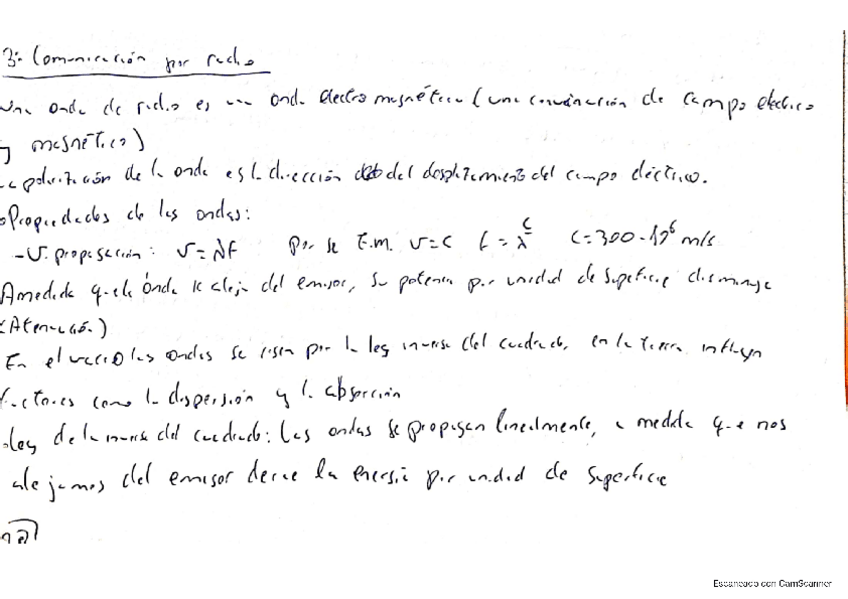 3.- Comunicación por radio
Una onda de radio es una onda electromagnética (una convinación de campo electrico
y magnético)
La polarización de la onda es la dirección del desplazamiento del campo eléctrico.
Propiedades de las ondas:
-V. propagación: v=λf Por ser E.M. v=c f=c/λ c=300·10⁶ m/s
A medida que la onda se aleja del emisor, su potencia por unidad de superficie disminuye
(Atenuación)
En el vacío las ondas se rigen por la ley inversa del cuadrado, en la tierra influyen
factores como la dispersión y la absorción
Ley de la inversa del cuadrado: Las ondas se propagan linealmente, a medida que nos
alejamos del emisor decae la energía por unidad de superficie
Escaneado con CamScanner